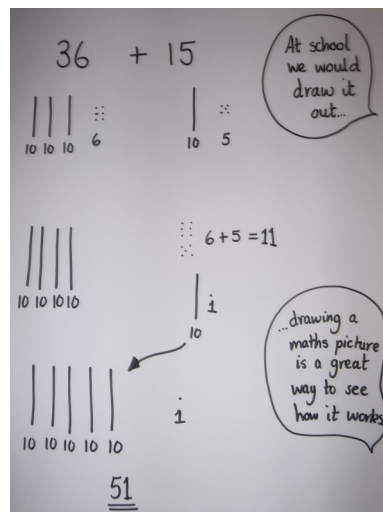 36 + 15
At school
we would
draw it
out...
10 10 10 6 10 5
6+5=11
10 10 10 10
1
10
...drawing a
maths picture
is a great
way to see
how it works
1
10 10 10 10 10
51